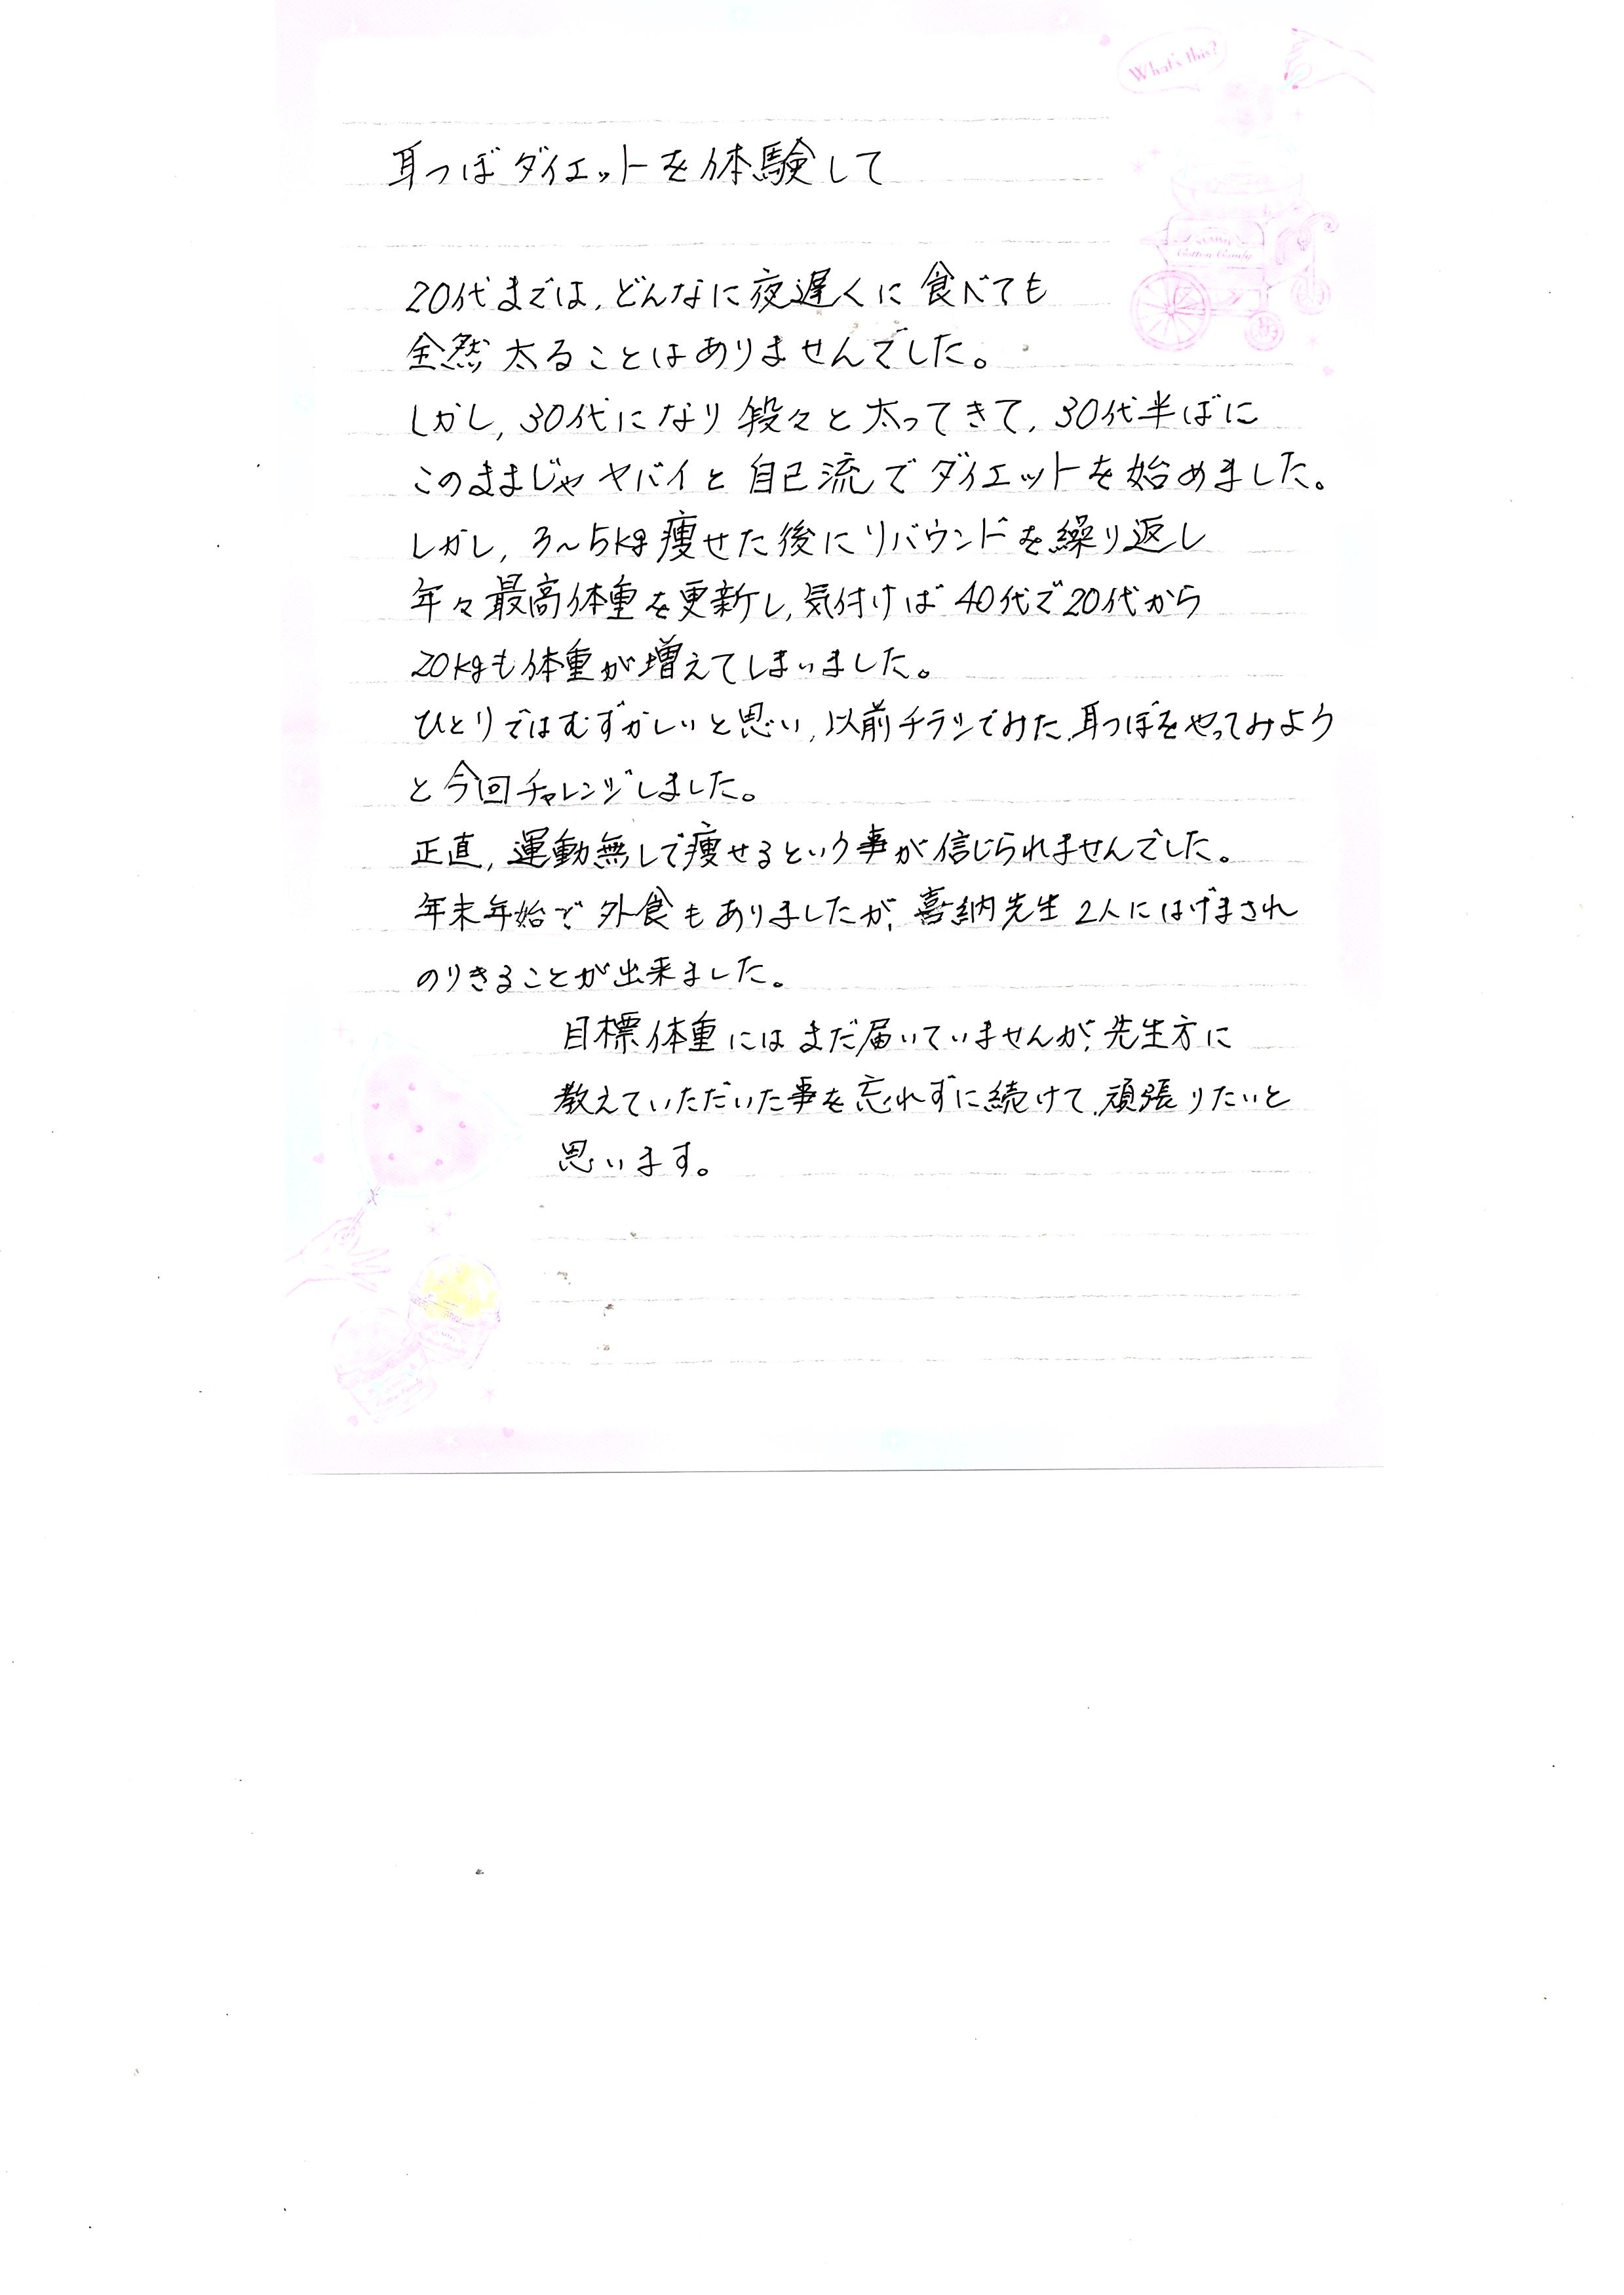 What's this?
耳つぼダイエットを体験して
Cotton Candy
20代までは、どんなに夜遅くに食べても
全然太ることはありませんでした。
しかし、30代になり段々と太ってきて、30代半ばに
このままじゃヤバイと自己流でダイエットを始めました。
しかし、3〜5kg痩せた後にリバウンドを繰り返し
年々最高体重を更新し、気付けば40代で20代から
20kgも体重が増えてしまいました。
ひとりではむずかしいと思い、以前チラシでみた、耳つぼをやってみよう
と今回チャレンジしました。
正直、運動無しで痩せるという事が信じられませんでした。
年末年始で外食もありましたが、喜納先生2人にはげまされ
のりきることが出来ました。
目標体重にはまだ届いていませんが、先生方に
教えていただいた事を忘れずに続けて、頑張りたいと
思います。